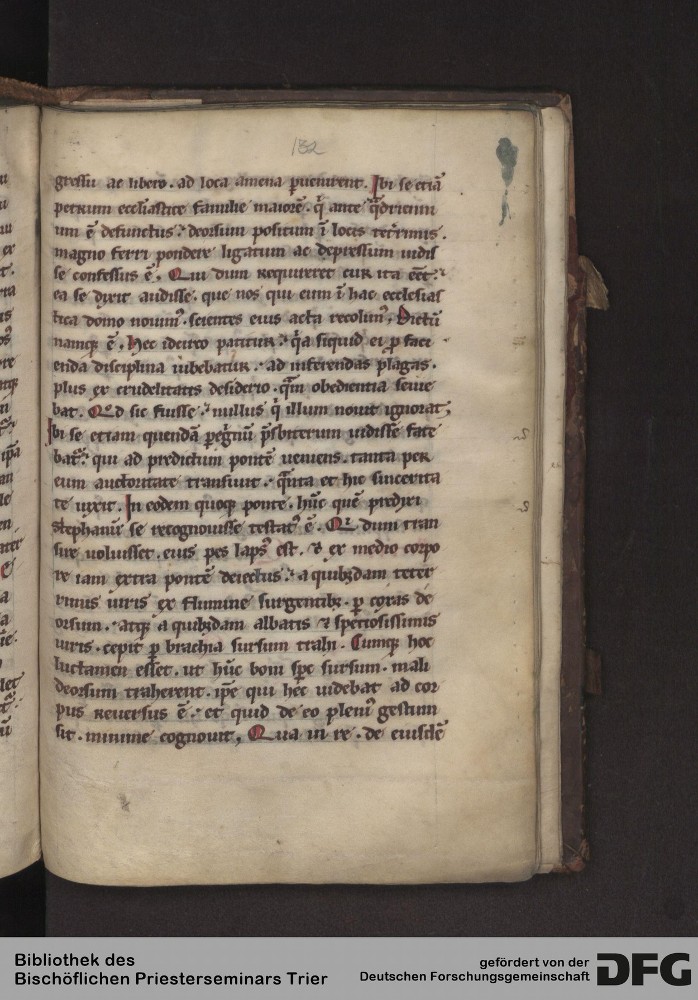 132
gressu ac libero . ad loca amena puenirent . Ibi se etiā
petrum eccl̄iastice familie maiorē . q̄ ante q̄drienni
um ē defunctus : deorsum positum ī locis tet̄rimis .
magno ferri pondere ligatum ac depressum uidis
se confessus ē . Qui dum requireret cur ita eēt :
ea se dixit audisse . que nos qui eum ī hac ecclesias
tica domo nouim⁹ . scientes eius acta recolim⁹ . Dictū
namq; ē . Hec idcirco patitur : q̄a siquid ei p̱ faci
enda disciplina iubebatur . ad inferendas plagas .
plus ex crudelitatis desiderio . q̄m obedientia serue
bat . Qd̓ sic fuisse : nullus q̄ illum nouit ignorat ;
Ibi se etiam quendā peg̓nū p̄sbiterum uidisse fate
bat᷑ : qui ad predictum pontē ueniens . tanta per
eum auctoritate transiuit : q̄nta et hic sincerita
te uixit . In eodem quoq; ponte . hūc quē predixi
Stephanū se recognouisse testat⁹ ē . Q dum tran
sire uoluisset . eius pes laps⁹ est . & ex medio corpo
re iam extra pontē deiectus : a quibȝdam teter
rimis uiris ex flumine surgentibȝ . p̱ coxas de
orsum . atq; a quibȝdam albatis ⁊ speciosissimis
uiris . cepit p̱ brachia sursum trahi . Cumq; hoc
luctamen esset . ut hūc boni sp̄c sursum . mali
deorsum traherent . ip̄e qui hec uidebat ad cor
pus reuersus ē : et quid de eo pleni⁹ gestum
sit . minime cognouit , Qua in re . de eiusdē
Bibliothek des
Bischöflichen Priesterseminars Trier
gefördert von der
Deutschen Forschungsgemeinschaft
DFG